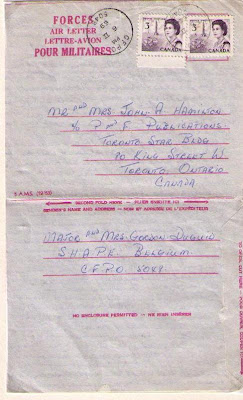 FORCES
AIR LETTER
LETTRE-AVION
POUR MILITAIRES
3
CANADA
3
CANADA
MR AND MRS. JOHN A. HAMILTON
% P F PUBLICATIONS
TORONTO STAR BLDG
80 KING STREET W
TORONTO, ONTARIO
CANADA
SECOND FOLD HERE
SENDER'S NAME AND ADDRESS — NOM ET ADRESSE DE L'EXPÉDITEUR
MAJOR AND MRS. GORDON
S.H.A.P.E. BELGIUM
C.F.P.O. 5048
NO ENCLOSURE PERMITTED — NE RIEN INSÉRER